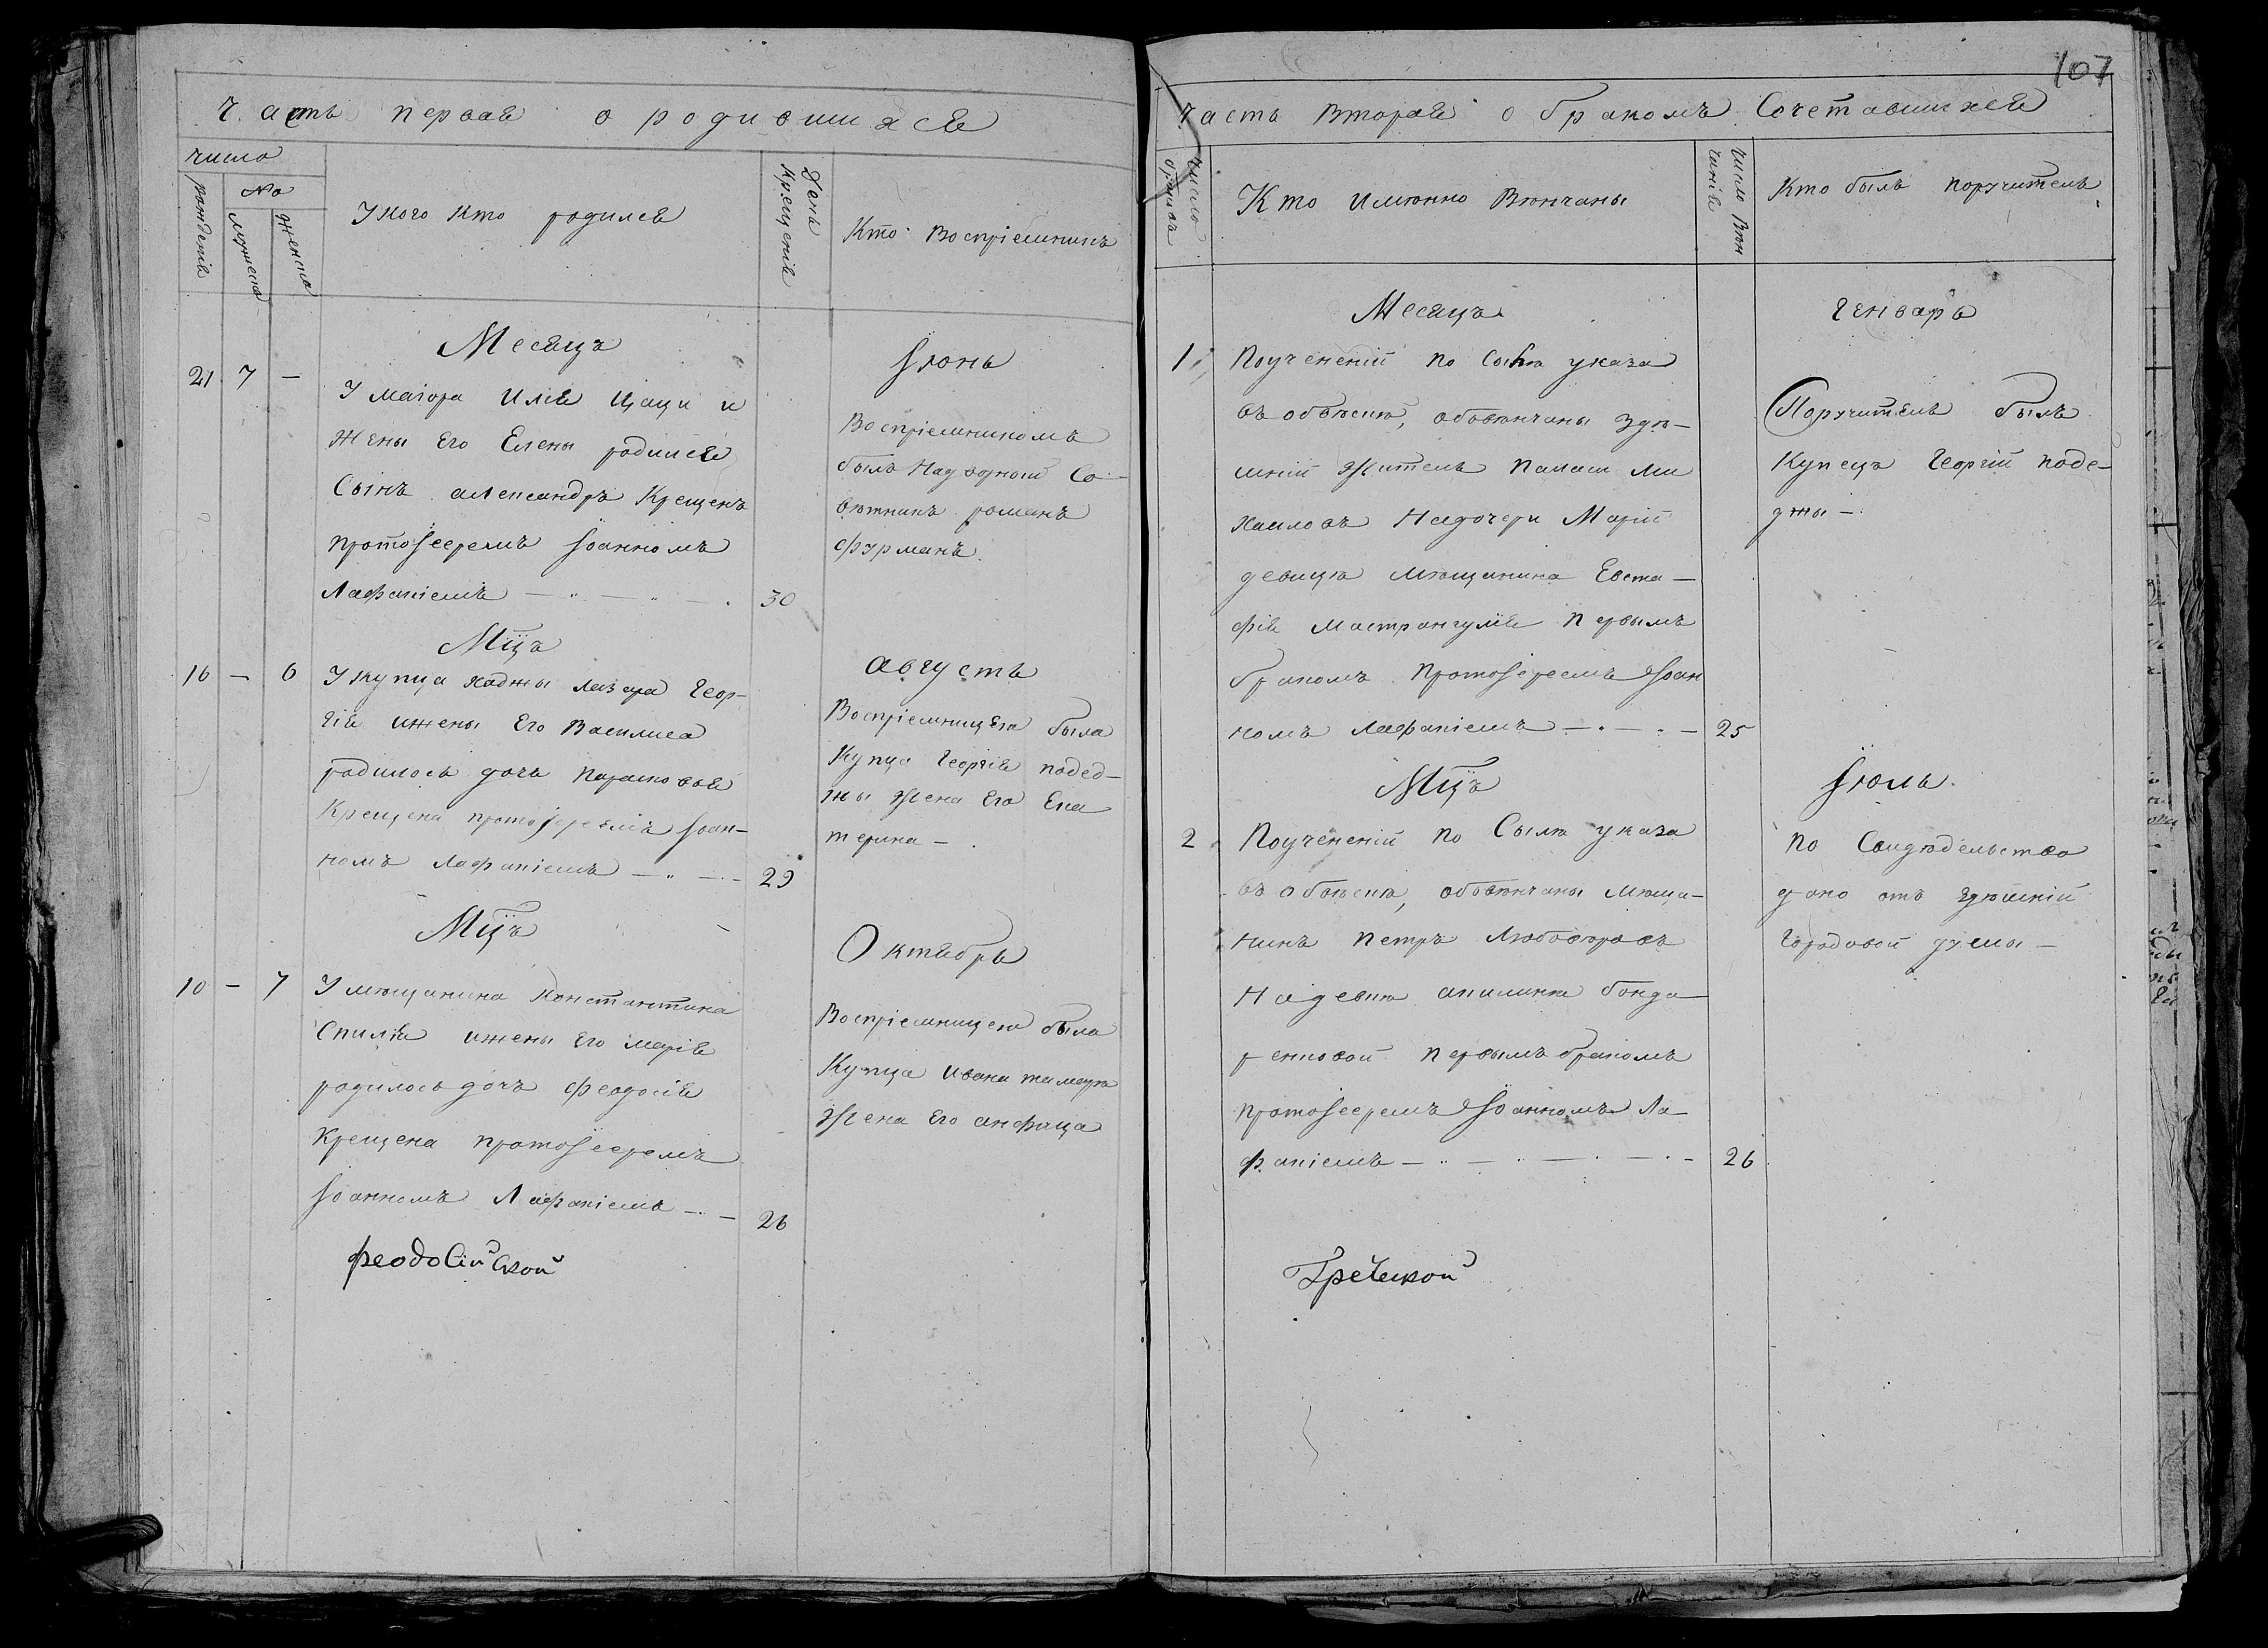 107
Часть первая о родившихся
число
рождения
№
мужеска
женска
У кого кто родился
День крещения
Кто восприемникъ
Месяцъ
Iюнь
21 7 —
У маiора Илiя Цаци и
жены Его Елены родился
Сынъ александръ Крещенъ
протоiеремъ Iоанномъ
Лафакiемъ 30
Восприемникомъ
былъ Надворный Со-
вѣтникъ романъ
фурманъ.
Мцъ
августъ
16 — 6
У купца хаджы лазаря Геор-
гiя ижены Его Василиса
родилось дочь парасковья
Крещена протоiереемъ Iоан-
номъ Лафакiемъ 29
Воспрiемницею была
Купца Георгiя подед-
жы жена Его Ека
терина —
Мцъ
Октябрь
10 — 7
У мѣщанина Константина
Спилiя ижены Его марiя
родилось дочь феодосiя
Крещена протоiеремъ
Iоанномъ Лафакiемъ 26
Воспрiемницею была
Купца Ивана
жена Его анфица
феодосiйской
Часть вторая о бракомъ Сочетавшихся
число браковъ
Кто имѣнно Вѣнчаны
число Вѣн
чанiя
Кто былъ поручитель
Месяцъ
Генварь
1
Поучененiй по Сылѣ указа
въ обыскѣ, обовѣнчаны здѣ-
шнiй житель Панаiи Ми
хаиловъ Надочери Марiй
девицѣ мѣщанина Евста-
фiя Мастрангулiя первымъ
бракомъ протоiереемъ Iоан
номъ Лафакiемъ 25
Поручитель былъ
Купецъ Георгiй поде-
джы —.
Мцъ
Iюль.
2
Поучененiй по Сылѣ указа
въ обыскѣ, обовѣнчаны мѣща-
нинъ петръ
Надевкѣ акилинѣ бонда-
ренковой первымъ бракомъ
протоiеремъ Iоанномъ Ла-
факiемъ 26
по Свидѣдельство
дано отъ здѣшнiй
Городовой думы —
Греческой